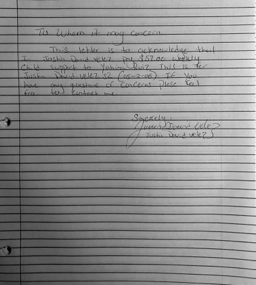 To Whom it may concern
This letter is to acknowledge that
I Justin David Velez pay $57.00 weekly
Child Support to Ruiz. This is for
Justin David Velez Jr IF You
have any questions or Concerns please feel
free contact me.
Sincerely,
Justin David Velez